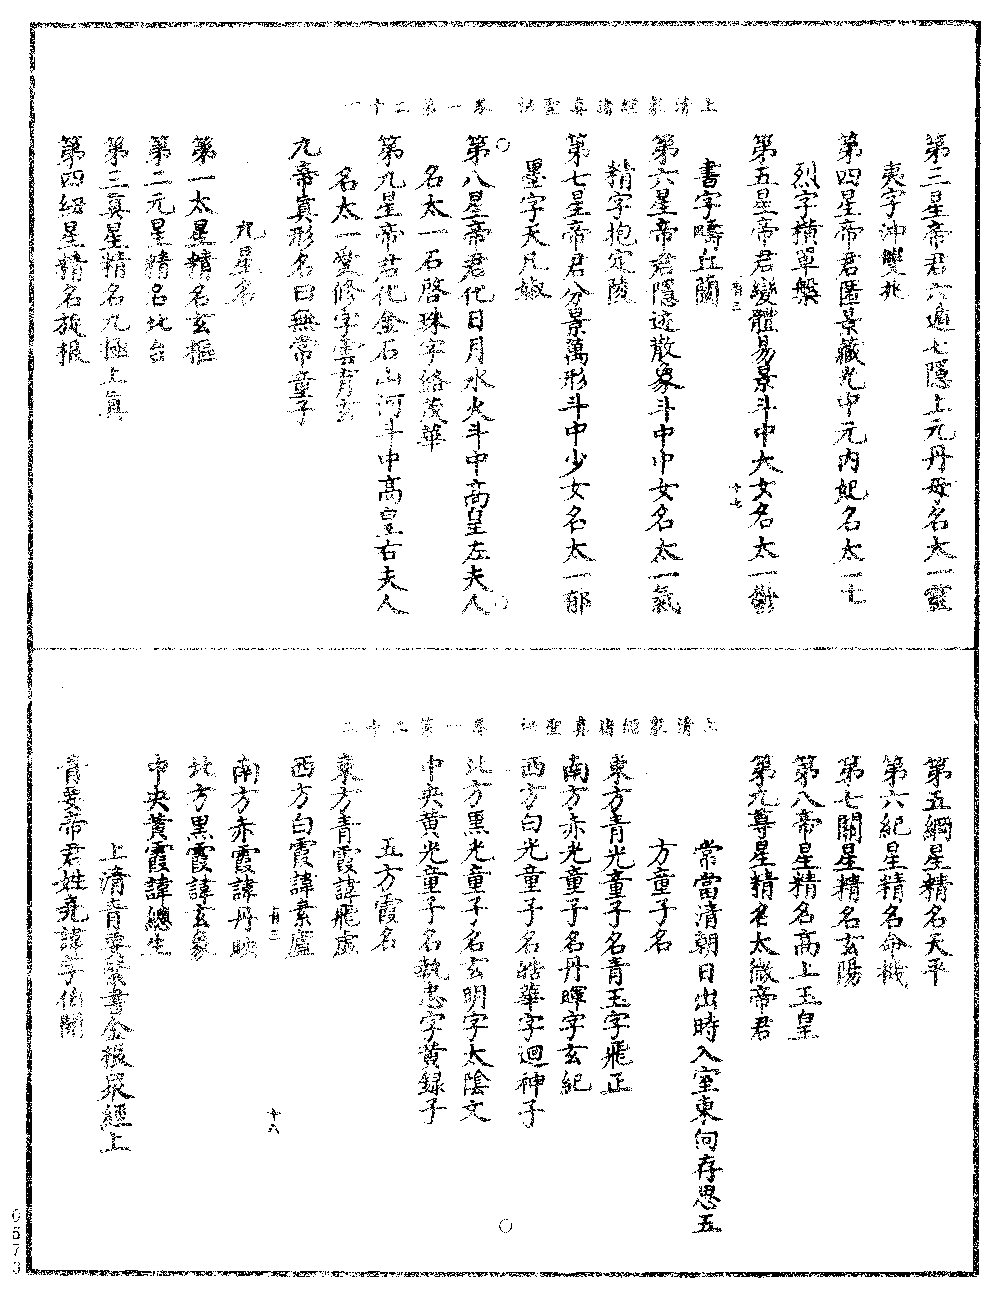 上清衆經諸真聖祕　卷一第二十一
第三星帝君六遁七隱上元丹母名太一靈
夷字沖雙兆
第四星帝君匿景藏光中元內妃名太一七
烈字橫單槃
第五星帝君變體易景斗中大女名太一鬱
十七
書字疇丘蘭
第六星帝君隱迹散象斗中中女名太一氣
精字抱定陵
第七星帝君分景萬形斗中少女名太一郁
墨字天凡婌
第八星帝君化日月水火斗中高皇左夫人
名太一石啓珠字絡茂華
第九星帝君化金石山河斗中高皇右夫人
名太一條字雲育玄
九帝真形名曰無常童子
九星名
第一太星精名玄樞
第二元星精名北台
第三真星精名九極上真
第四紐星精名旋根
上清衆經諸真聖祕　卷一第二十二
第五綱星精名天平
第六紀星精名命機
第七關星精名玄陽
第八帝星精名高上玉皇
第九尊星精名太微帝君
常當清朝日出時入室東向存思五
方童子名
東方青光童子名青玉字飛正
南方赤光童子名丹暉字玄紀
西方白光童子名皓華字迴神子
北方黑光童子名玄明字太陰文
中央黃光童子名執忠字黃録子
五方霞名
東方青霞諱飛虛
西方白霞諱素廬
十八
南方赤霞諱丹映
北方黑霞諱玄象
中央黃霞諱總生
上清青要紫書金根衆經上
青要帝君姓堯諱字伯開
0573